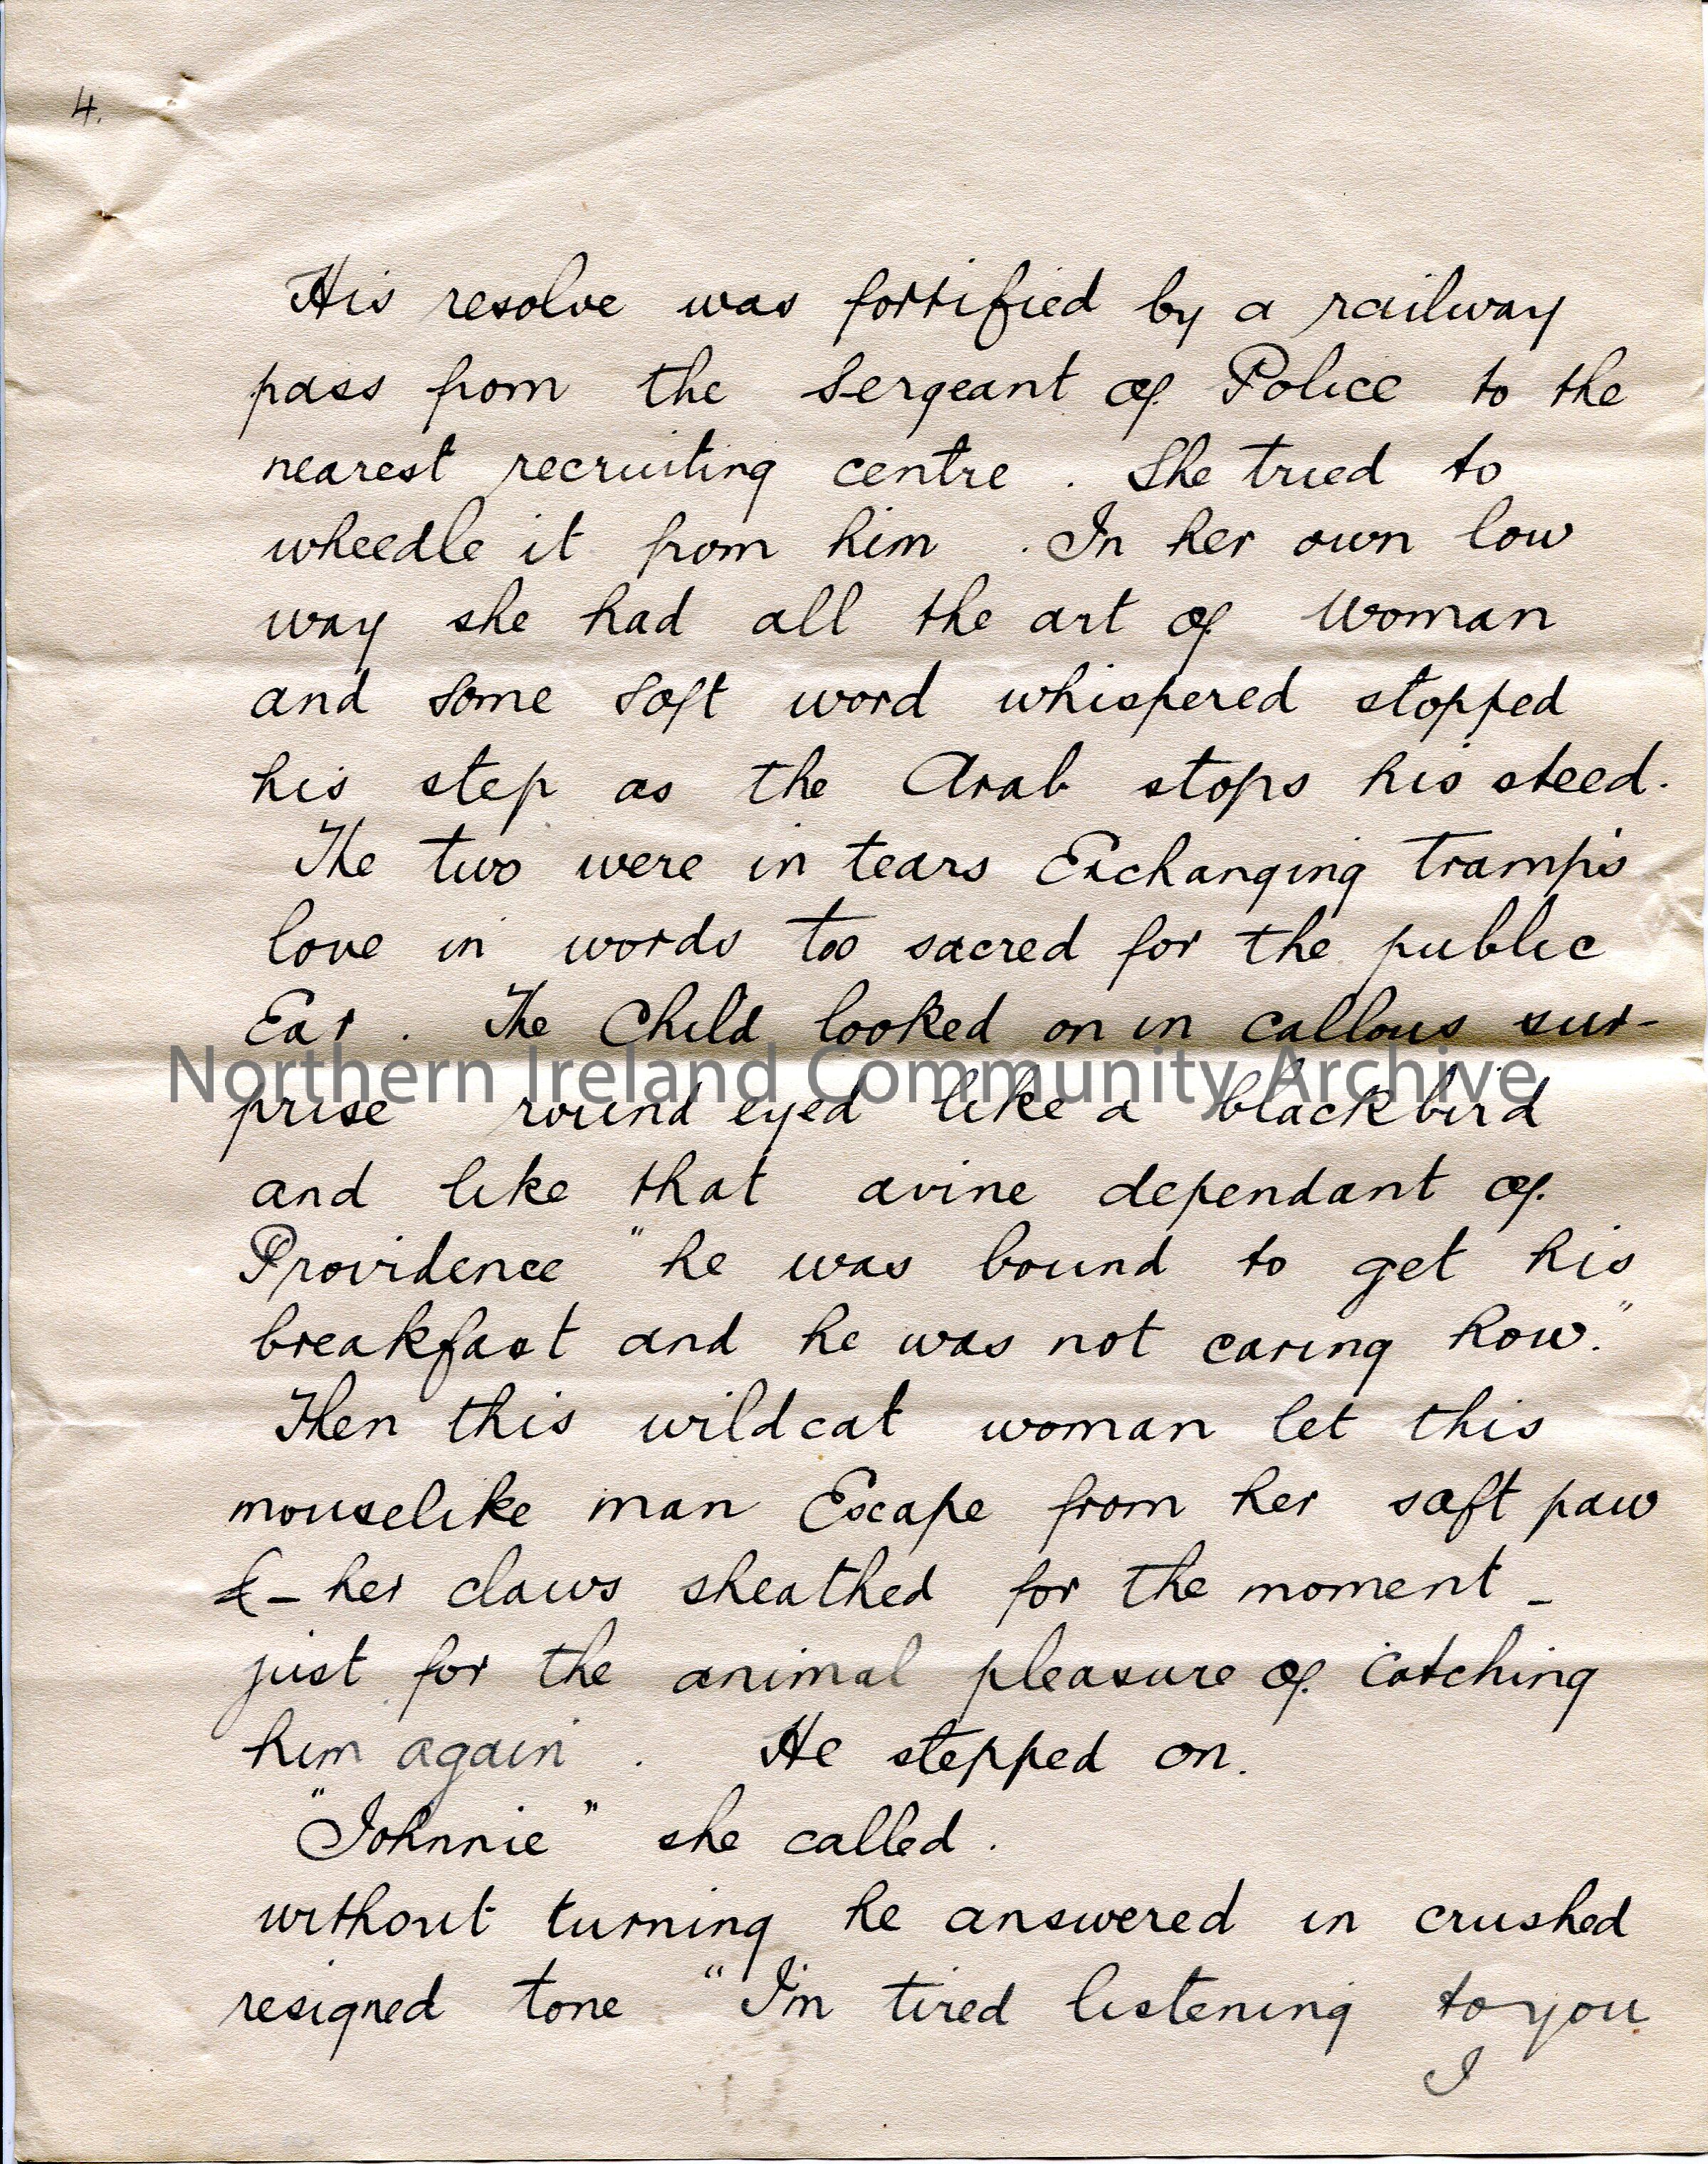 4.
His resolve was fortified by a railway
pass from the Sergeant of Police to the
nearest recruiting centre . She tried to
wheedle it from him . In her own low
way she had all the art of Woman
and some soft word whispered stopped
his step as the Arab stops his steed.
The two were in tears Exchanging Tramp's
love in words too sacred for the public
Ear . The Child looked on in callous sur-
Northern Ireland Community Archive
prise round eyed like a blackbird
and like that avine dependant of
Providence "he was bound to get his
breakfast and he was not caring how."
Then this wildcat woman let this
mouselike man Escape from her soft paw
& - her claws sheathed for the moment -
just for the animal pleasure of catching
him again . He stepped on.
"Johnnie" she called .
without turning he answered in crushed
resigned tone "I'm tired listening to you
I